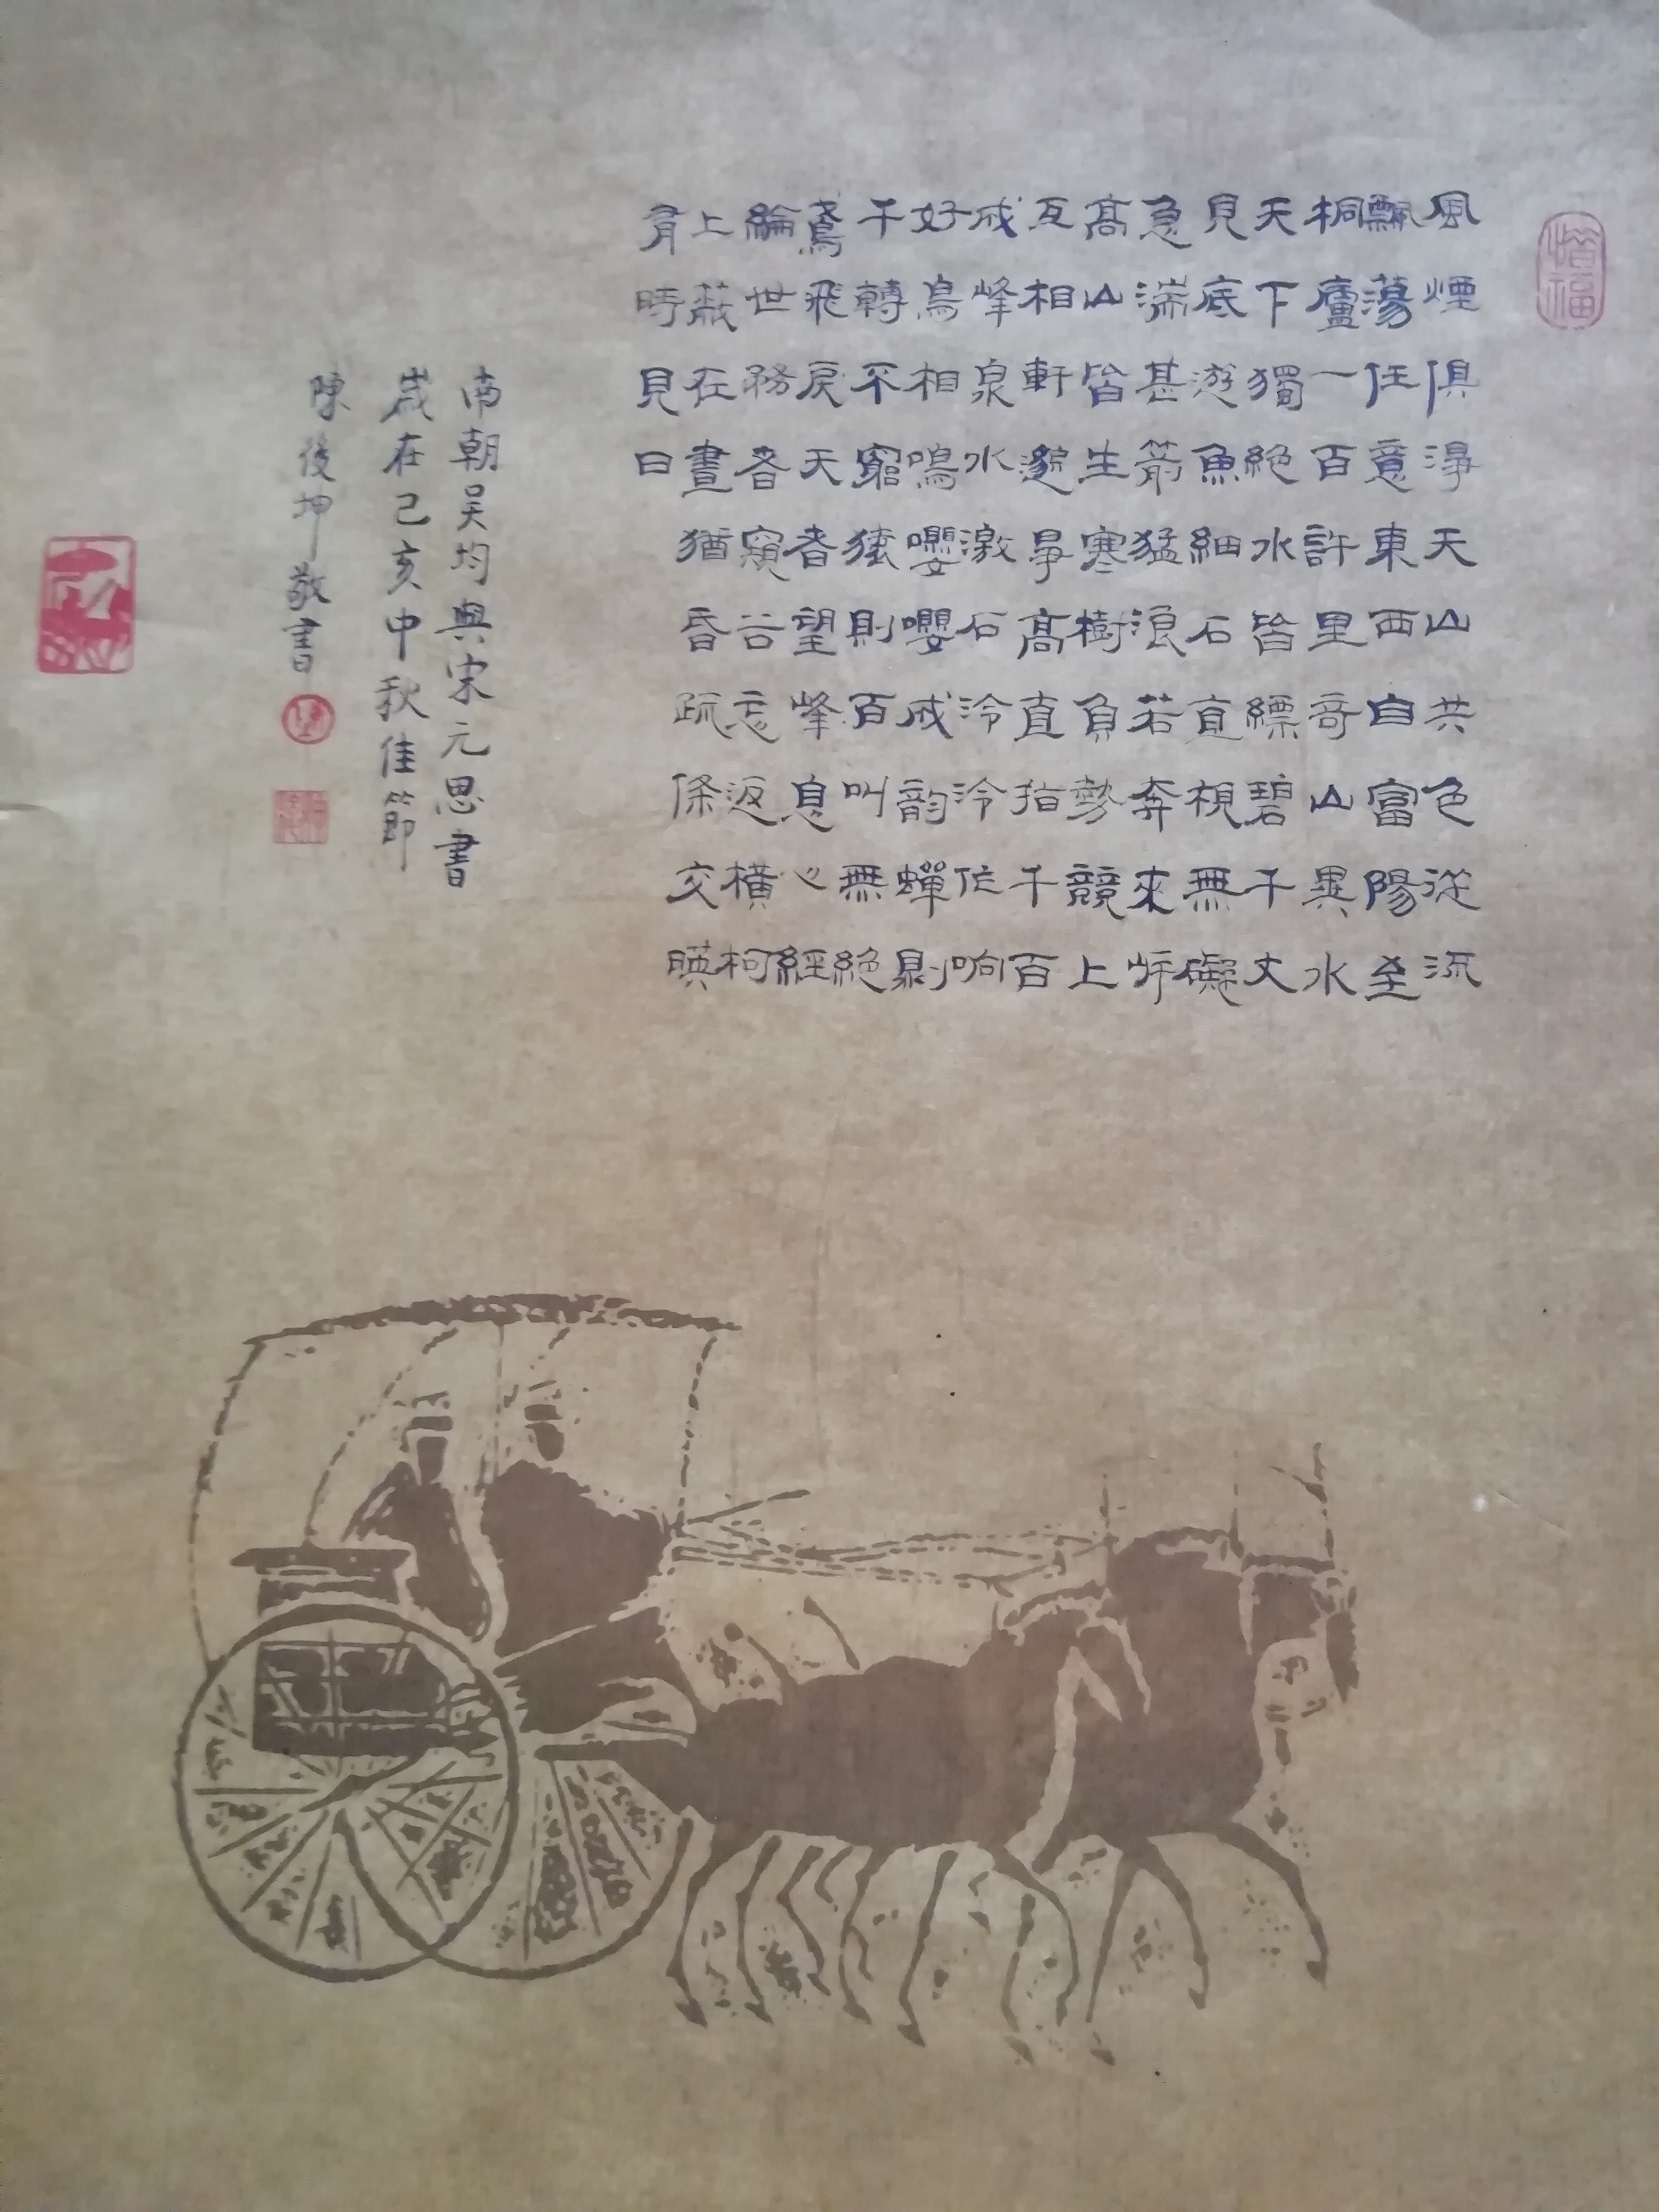 惜福
風煙俱淨天山共色從流
飄蕩任意東西自富陽至
桐廬一百許里奇山異水
天下獨絕水皆縹碧千丈
見底游魚細石直視無礙
急湍甚箭猛浪若奔來岸
高山皆生寒樹負勢競上
互相軒邈爭高直指千百
成峰泉水激石泠泠作响
好鳥相鳴嚶嚶成韵蟬則
千轉不窮猿則百叫無絕
鳶飛戾天者望峰息心經
綸世務者窺谷忘返橫柯
上蔽在晝猶昏疏條交暎
有時見日
南朝吴均與宋元思書
歲在己亥中秋佳節
陳後坤敬書